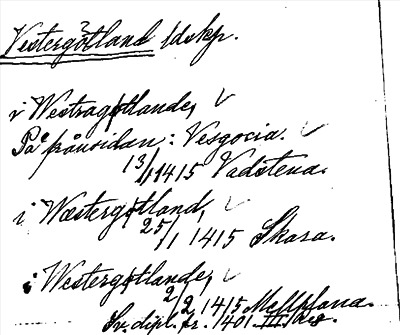 Vestergötland ldskp.
i Westragøtlande,
På frånsidan: Vesgocia.
13/1 1415 Vadstena.
i Wæstergøtland,
25/1 1415 Skara.
i Westergøtlande,
2/2 1415 Mellplana.
Sv. dipl. fr. 1401 III